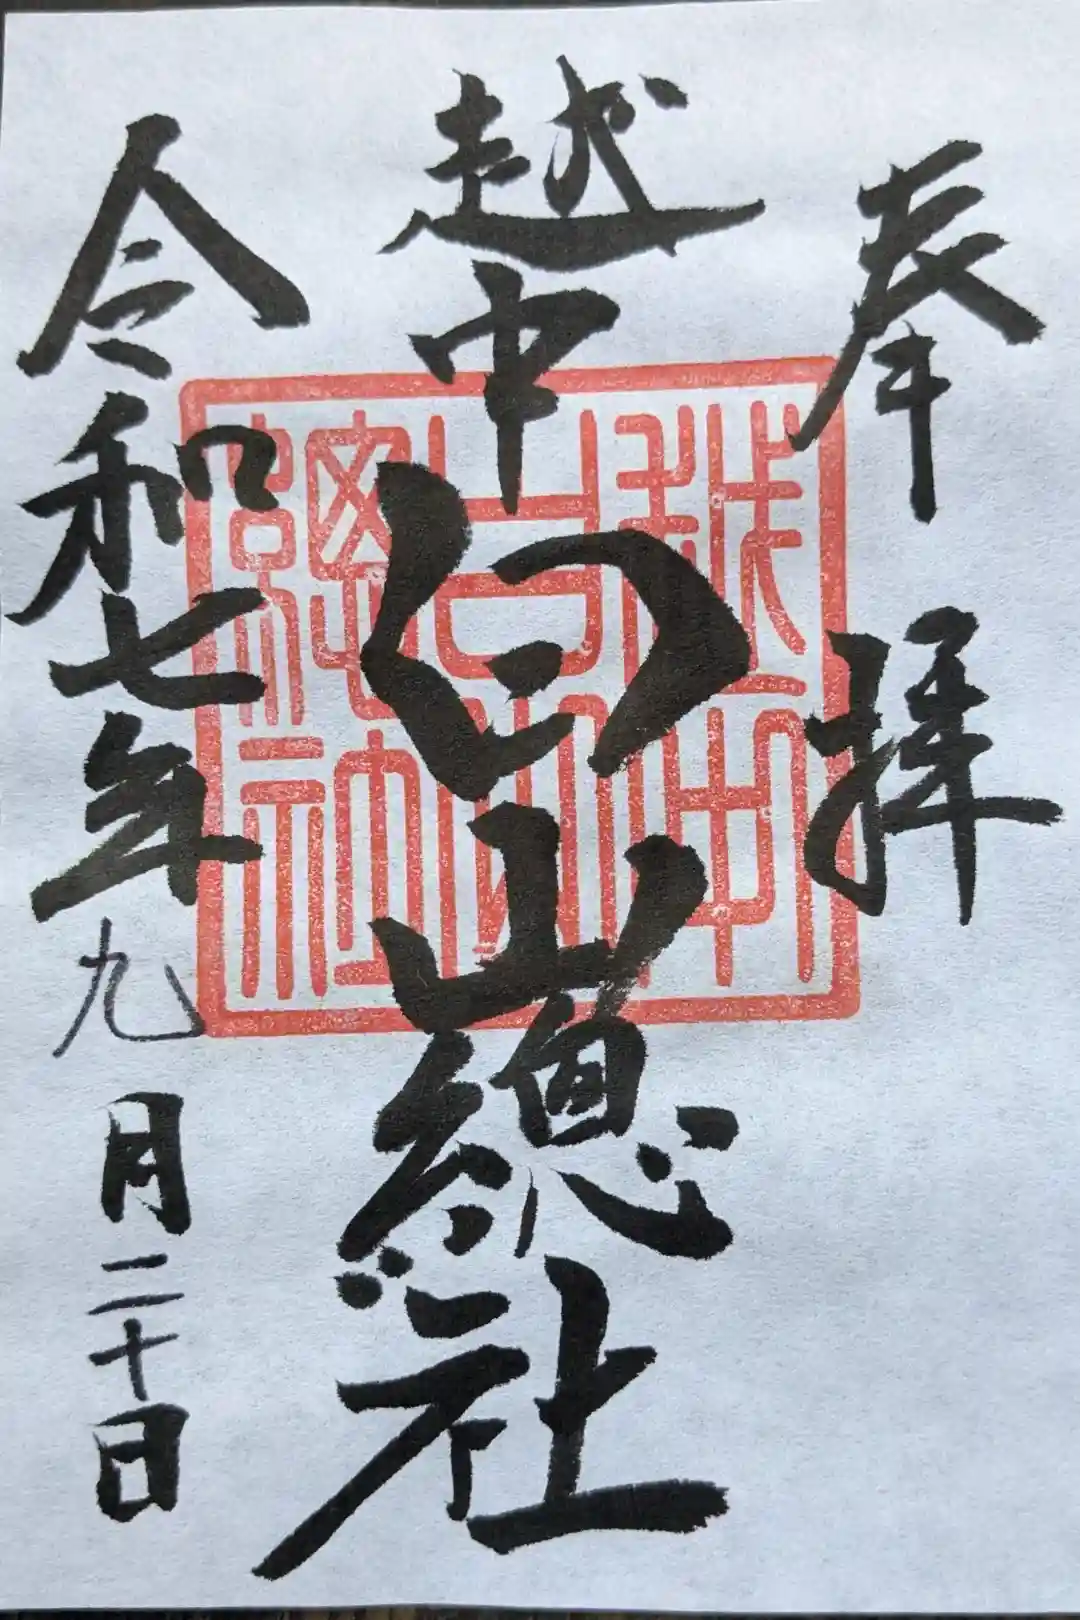 奉拝
越中白山總社
令和七年九月二十日
越中
白山
總社